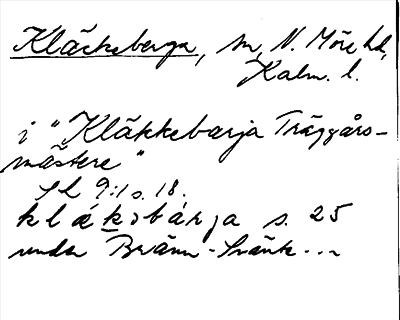 Kläckeberga, sn, N. Möre hd,
Kalm. l.
i "Kläkkebarja Träggårs-
mästere"
Sv L 9:1 s. 18.
klä́kəbárja s. 25
under Bränn-Svänk...